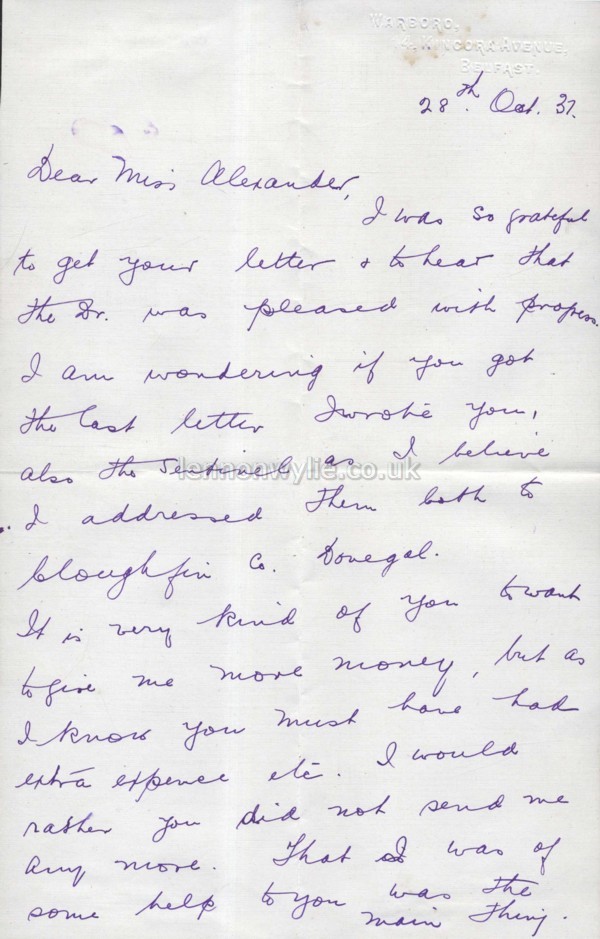 WARBORO,
14, KINCORA AVENUE,
BELFAST.
28th. Oct. 37.
Dear Miss Alexander,
I was so grateful
to get your letter & to hear that
the Dr. was pleased with progress.
I am wondering if you got
the last letter I wrote you,
also the Sentinel as I believe
lennonwylie.co.uk
I addressed them both to
Cloughfin Co. Donegal.
It is very kind of you to want
to give me more money, but as
I know you must have had
extra expence etc. I would
rather you did not send me
any more. That I was of
some help to you was the
main thing.